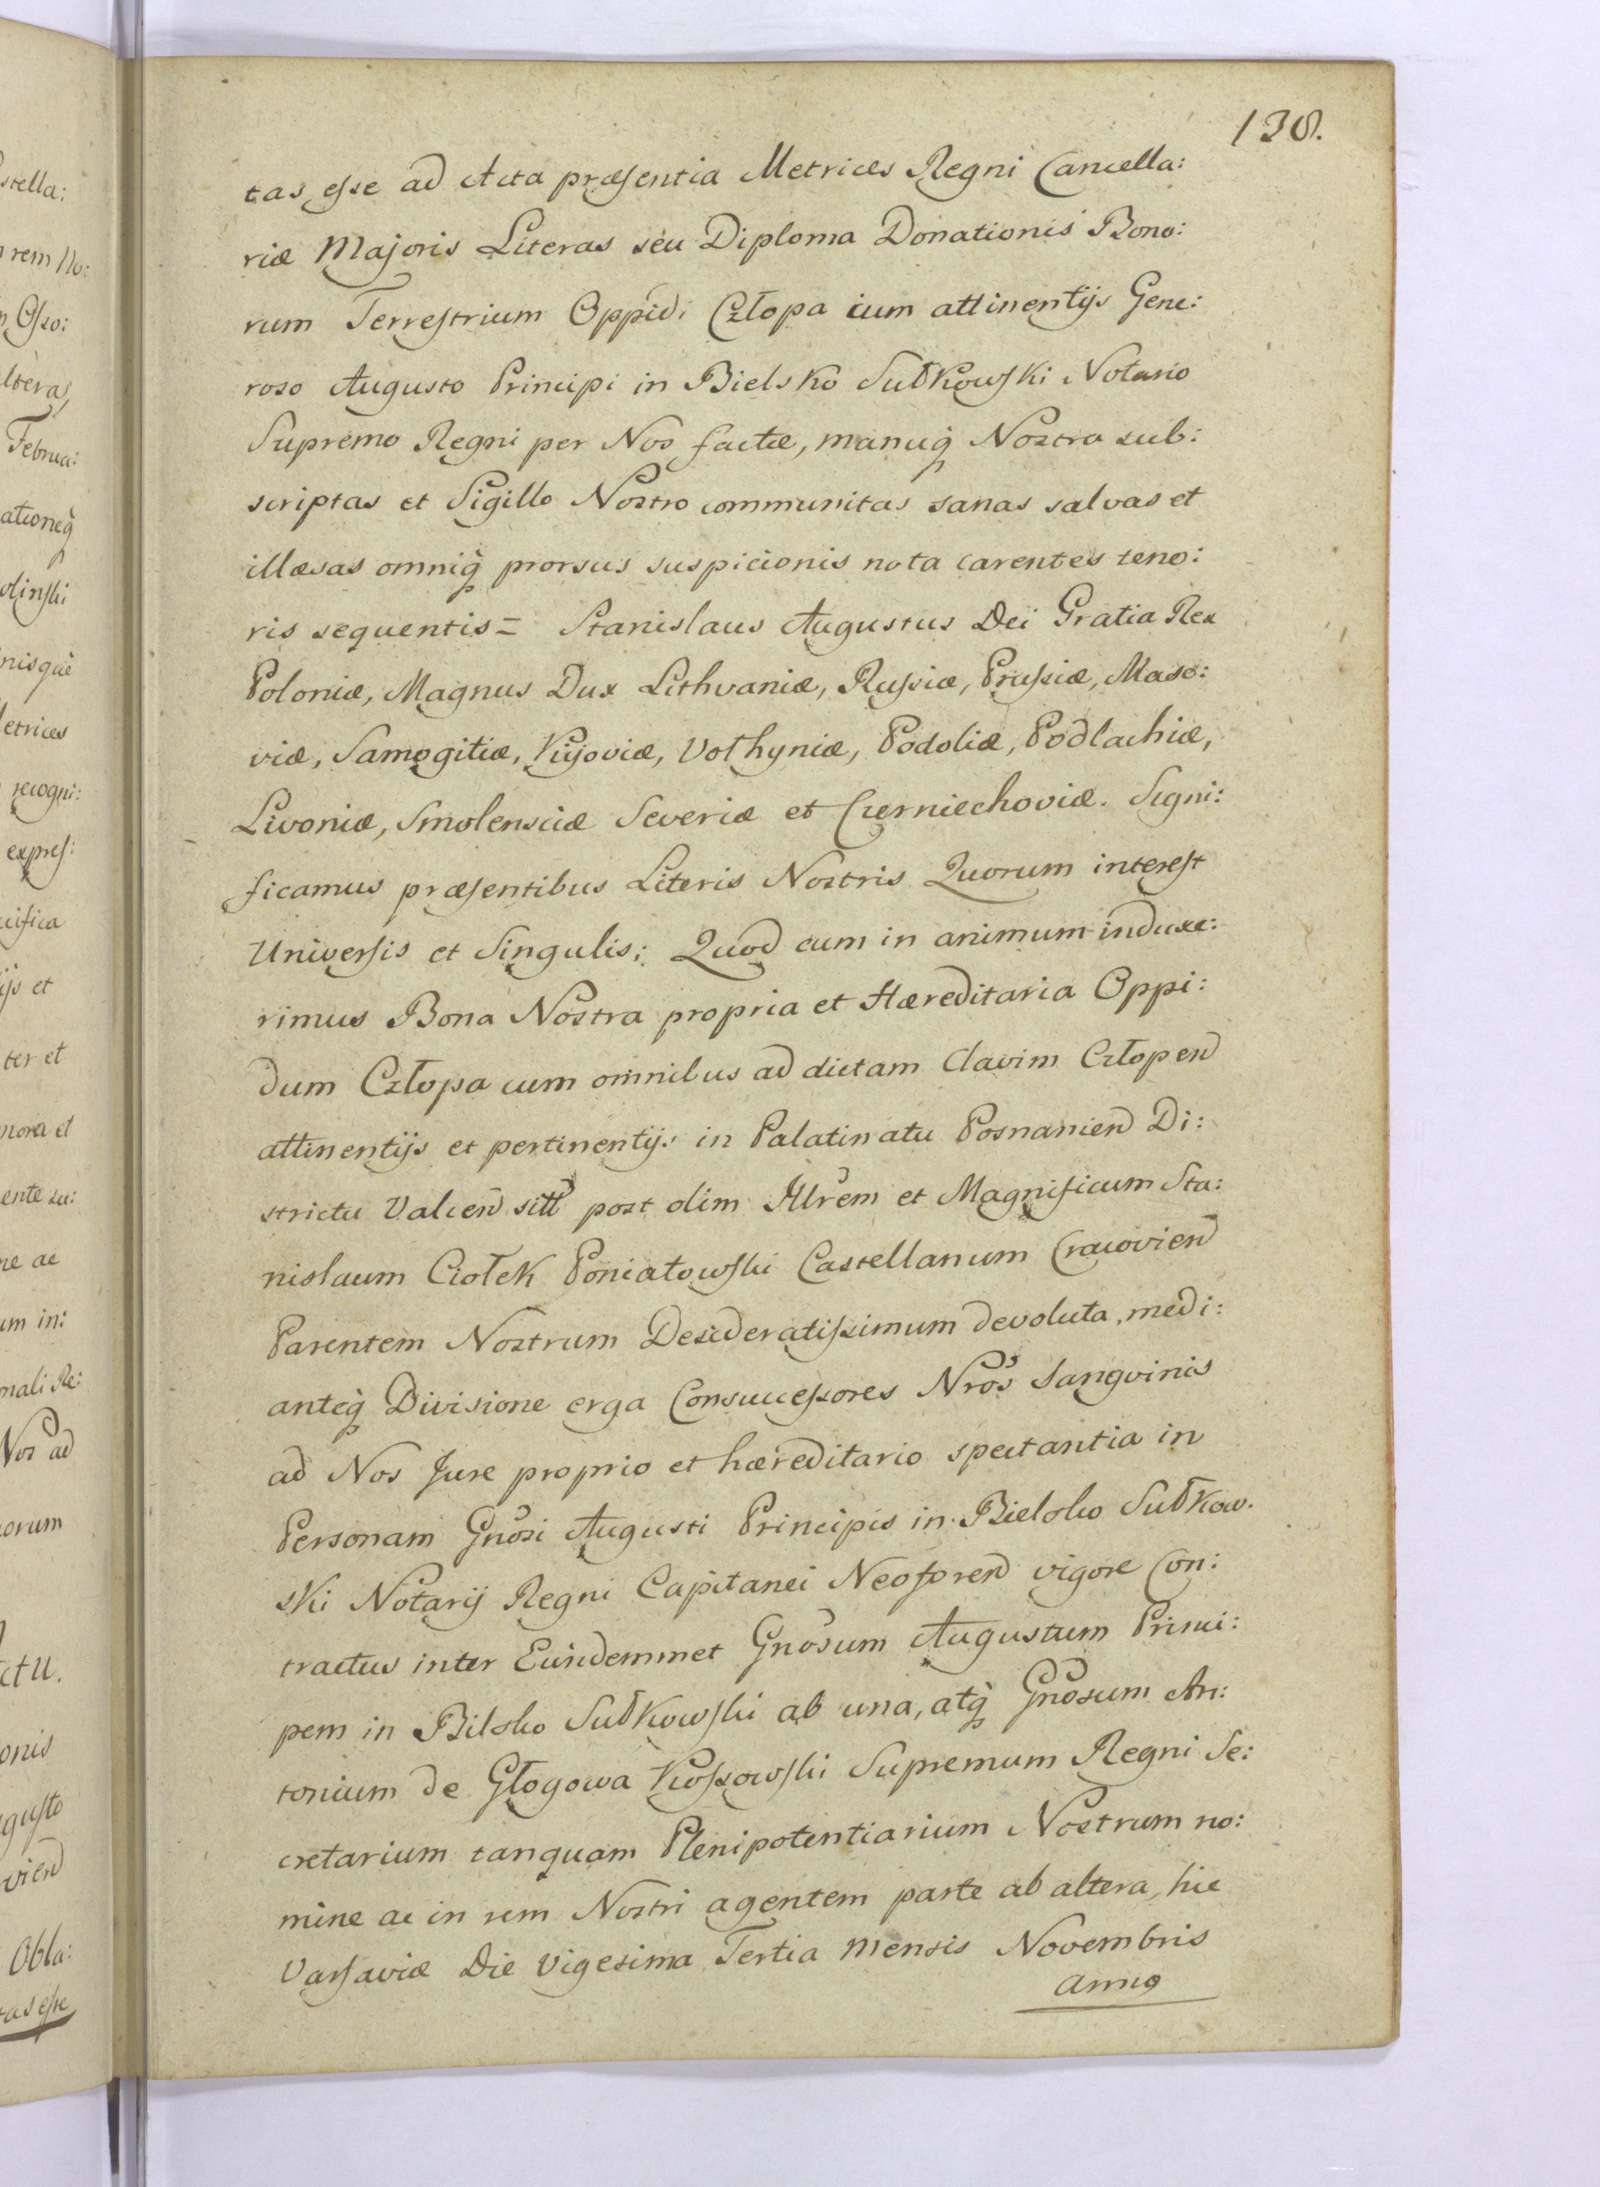 138.
tas esse ad Acta præsentia Metrices Regni Cancella:
riæ Majoris Literas seu Diploma Donationis Bono:
rum Terrestrium Oppidi Człopa cum attinentijs Gene:
roso Augusto Principi in Bielsko Sułkowski Notario
Supremo Regni per Nos factæ, manuq̀ Nostra sub:
scriptas et Sigillo Nostro communitas sanas salvas et
illæsas omniq̀ prorsus suspicionis nota carentes teno:
ris sequentis = Stanislaus Augustus Dei Gratia Rex
Poloniæ, Magnus Dux Lithvaniæ, Russiæ, Prussiæ, Maso:
viæ, Samogitiæ, Kijoviæ, Vołhyniæ, Podoliæ, Podlachiæ,
Livoniæ, Smolensciæ Severiæ et Czerniechoviæ. Signi:
ficamus præsentibus Literis Nostris Quorum interest
Universis et Singulis; Quod cum in animum induxe:
rimus Bona Nostra propria et Hæreditaria Oppi:
dum Człopa cum omnibus ad dictam Clavim Człopen̄
attinentijs et pertinentijs in Palatinatu Posnanien̄ Di:
strictu Valcen̄ sitt post olim Illrem et Magnificum Sta:
nislaum Ciołek Poniatowski Castellanum Cracovien̄
Parentem Nostrum Desideratissimum devoluta, medi:
anteq̀ Divisione erga Consuccessores Nros Sangvinis
ad Nos Jure proprio et hæreditario spectantia in
Personam Gnosi Augusti Principis in Bielsko Sułkow.
ski Notarij Regni Capitanei Neoforen̄ vigore Con:
tractus inter Eundemmet Gnosum Augustum Princi:
pem in Bilsko Sułkowski ab una, atq̀ Gnosum An:
tonium de Głogowa Kossowski Supremum Regni Se:
cretarium tanquam Plenipotentiarium Nostrum no:
mine ac in rem Nostri agentem parte ab altera, hic
Varsaviæ Die vigesima Tertia mensis Novembris
Anno